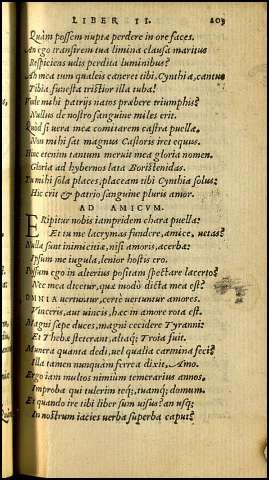 LIBER II. 203
Quàm possem nuptæ perdere in ore faces.
An ego transirem tua limina clausa maritus
Respiciens udis perdita luminibus?
Ah mea tum qualeis caneret tibi, Cynthia, cantus
Tibia, funesta tristior illa tuba!
Unde mihi patrijs natos præbere triumphis?
Nullus de nostro sanguine miles erit.
Quòd si uera meæ comitarem castra puellæ,
Non mihi sat magnus Castoris iret equus.
Hinc etenim tantum meruit mea gloria nomen,
Gloria ad hybernos lata Boristenidas.
Tu mihi sola places, placeam tibi Cynthia solus:
Hic erit & patrio sanguine pluris amor.
AD AMICUM.
ERipitur nobis iampridem chara puella:
Et tu me lacrymas fundere, amice, uetas?
Nulla sunt inimicitiæ, nisi amoris, acerbæ:
Ipsum me iugula, lenior hostis ero.
Possum ego in alterius positam spectare lacerto?
Nec mea dicetur, quæ modò dicta mea est?
OMNIA uertuntur, certè uertuntur amores.
Vinceris, aut uincis, hæc in amore rota est.
Magni sæpe duces, magni cecidere Tyranni:
Et Thebæ steterant, altaq; Troia fuit.
Munera quanta dedi, uel qualia carmina feci?
Illa tamen nunquàm ferrea dixit, Amo.
Ergo iam multos nimium temerarius annos,
Improba qui tulerim teq;, tuamq; domum.
Et quando ire tibi liber sum uisus? an usq;
In nostrum iacies uerba superba caput?